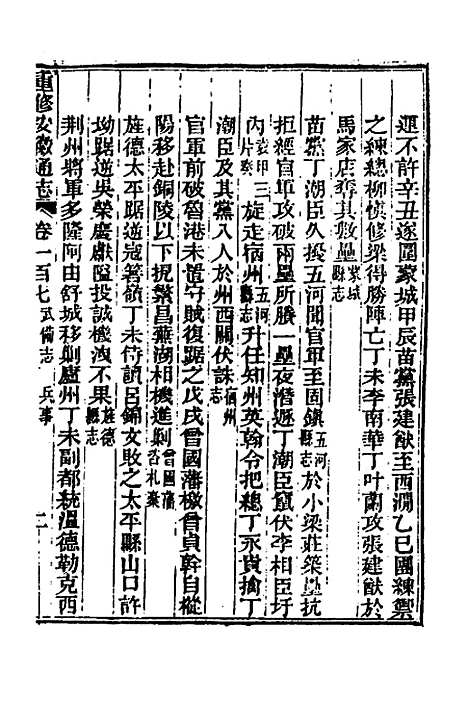 運不許辛丑遂圍蒙城甲辰苗黨張建猷至西澗乙巳團練禦
之練總柳慎修梁得勝陣亡丁未李南華丁叶蘭攻張建猷於
馬家店奪其數壘蒙城縣志
苗黨丁潮臣久擾五河聞官軍至固鎮五河縣志於小梁莊築壘抗
拒經官軍攻破兩壘所賸一壘夜潛遯丁潮臣竄伏李相臣圩
內袁甲三片奏旋走宿州五河縣志升任知州英翰令把總丁永貴擒丁
潮臣及其黨八人於州西關伏誅宿州志
官軍前破魯港未置守賊復踞之戊戌曾國藩檄曾貞幹自樅
陽移赴銅陵以下規繁昌蕪湖相機進剿曾國藩咨札彙
旌德太平踞逆寇箬嶺丁未侍讀呂錦文敗之太平縣山口許
坳踞逆吳榮慶獻隘投誠機洩不果旌德縣志
荆州將軍多隆阿由舒城移剿廬州丁未副都統溫德勒克西
重修安徽通志 卷一百七 武備志 兵事 二